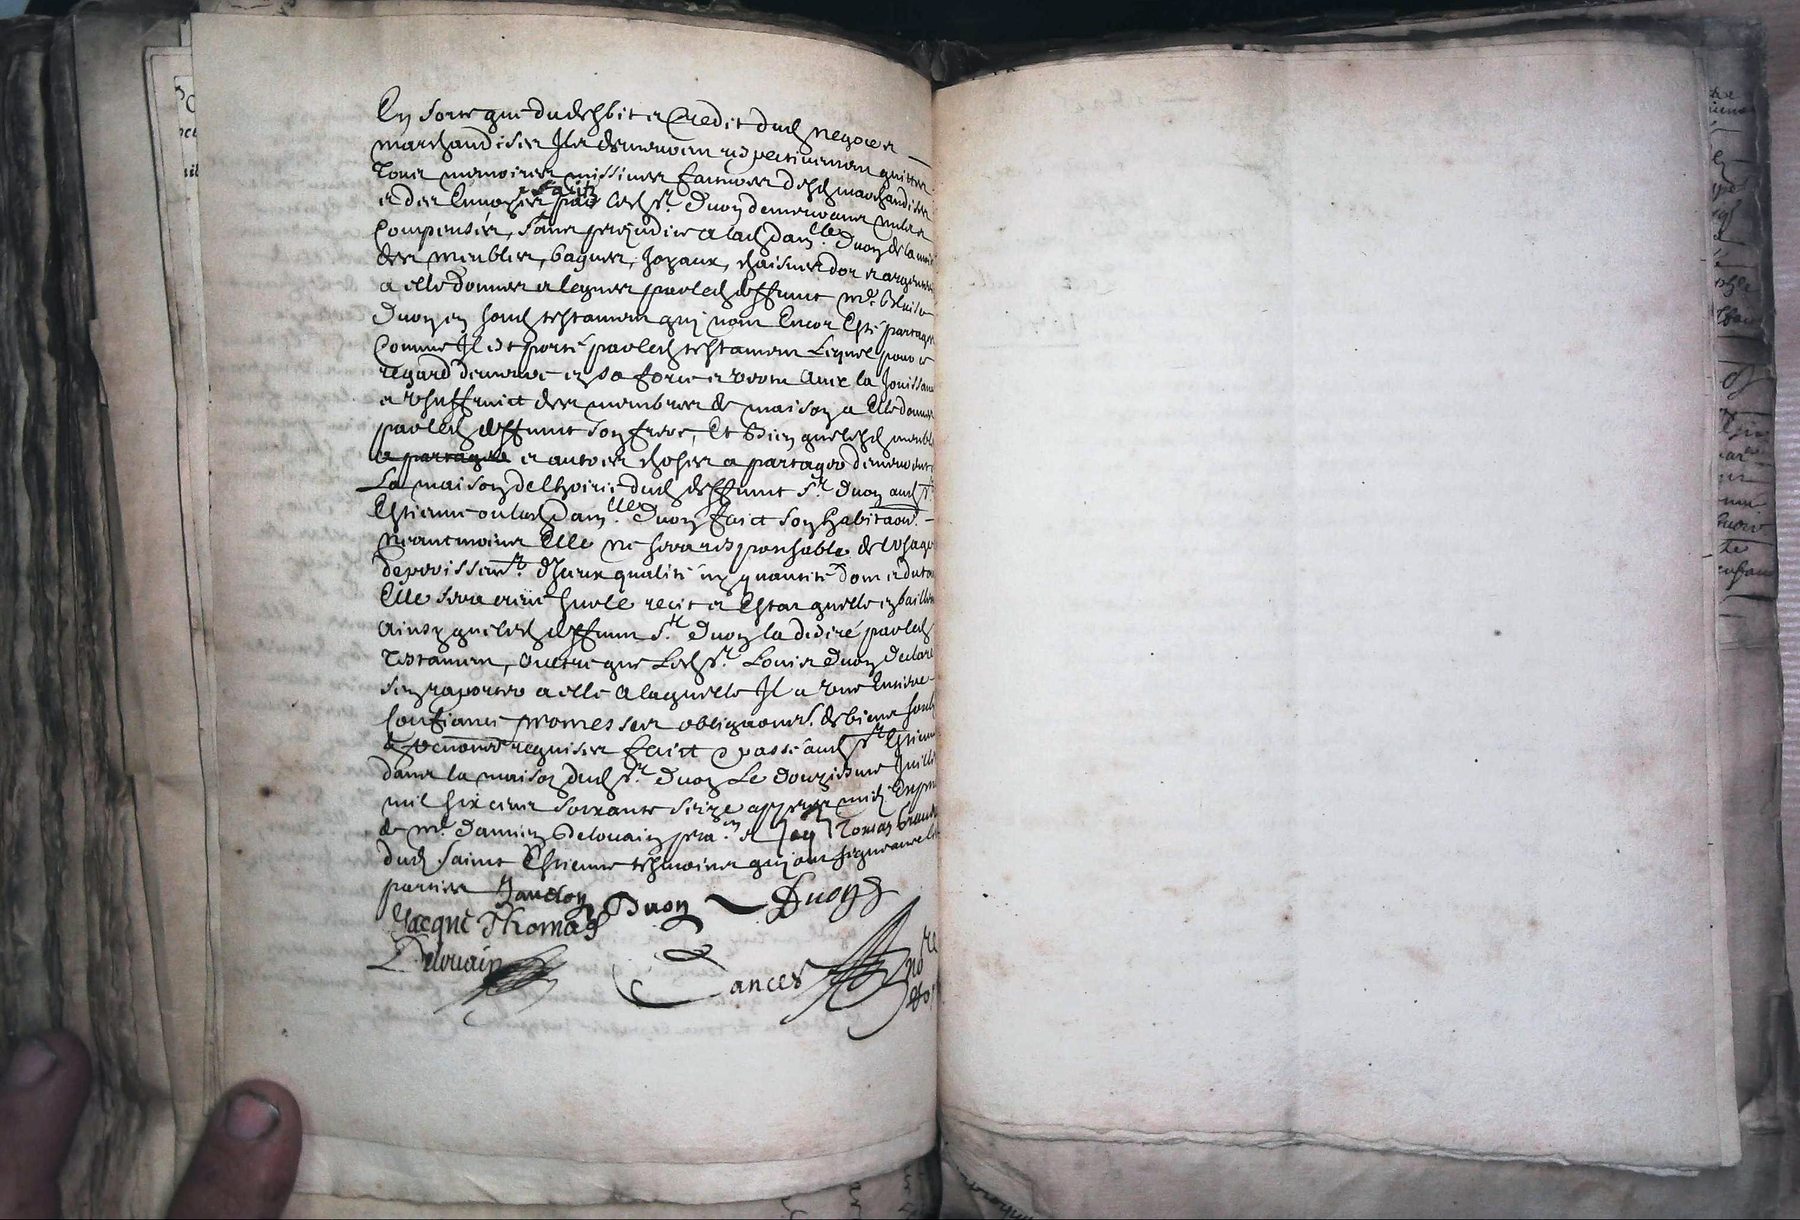 En sorte que du dehbit et Credit dud negoce et
marchandises Ilz demeurent respectivement quittes
Tous memoires missives factures desd marchandises
et des Envoyes faitz par led sr. Duon demeurant nulz et
Compensés, sans prejudice a lad Damlle Duon de la moi
des meubles, bagues, Joyaux, chaisnes dor et argent
a elle donnes et legues par led deffunt mr.
Duon en sond testament quj nont Encor Esté partag
Comme Il est porté par led testament Lequel pour ce
regard demeure en sa force et vertu avec la Jouissan
et usuffruict des membres de maison a Elle donn
par led deffunt son frere, Et Bien que lesd meubl
a partager et autres choses a partager demeurent
La maison de lhoirie dud deffunt sr Duon aud St
Estienne ou lad Damlle Duon faict son habitaon.
neantmoins Elle ne sera responsable de lusage
deperissemt. dJceux qualité ny quantité dont et du to
Elle sera creue sur le recit et Estat quelle en baille
Ainsy que led deffunt sr Duon la desiré par led
Testament, outre que Led sr. Louis Duon declare
sen raporter a elle a laquelle Il a une Entiere
Confiance promesses obligaons. de biens soub
& renonces requises faict & passé aud St Estienne
dans la maison dud sr Duon Le douziesme Juille
mil six cens soixante seize appres midy En pre
de mr. Damien Delouain pra.en et Jaq Tomas
dud Saint Estienne tesmoins quj ont signe avec le
parties Duon Duon
Jacque Thomas
Delouain